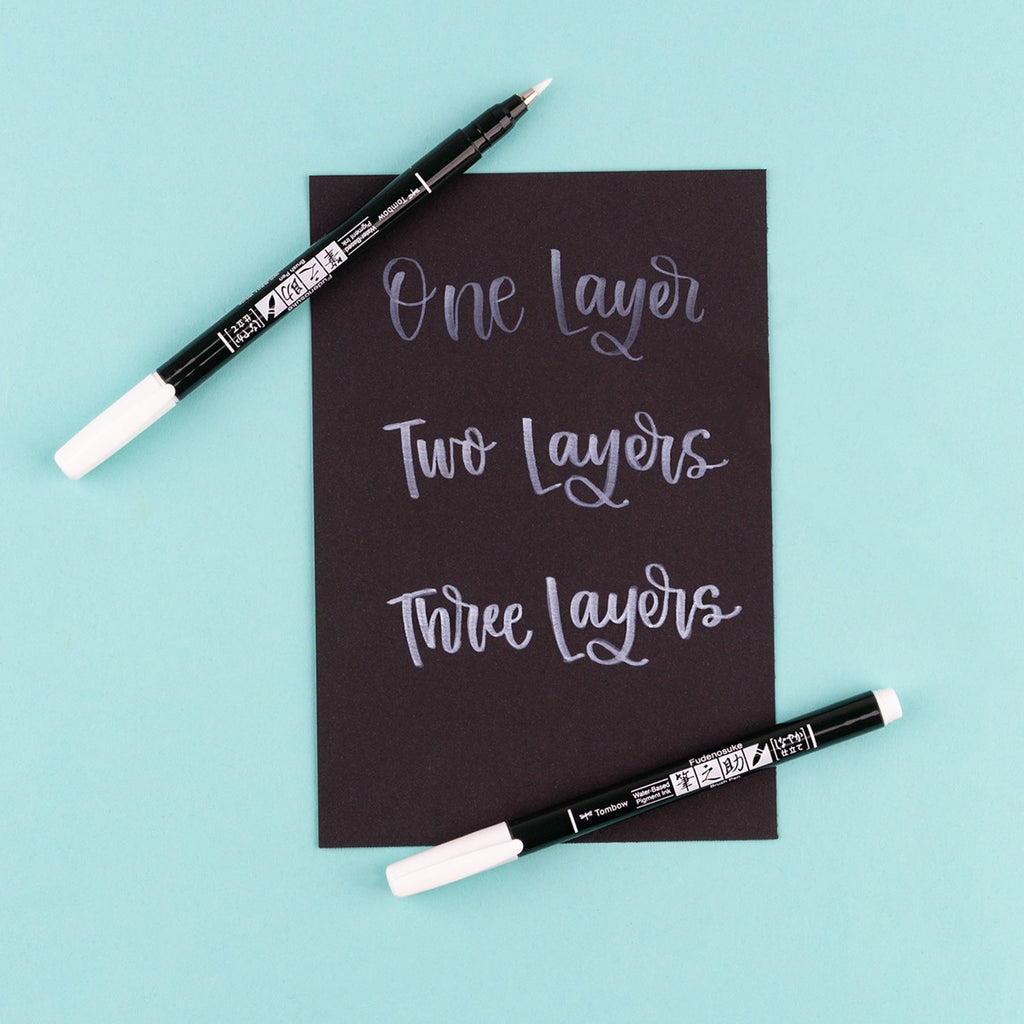 One Layer
Two Layers
Three Layers
Tombow
Water-Based
Pigment Ink
筆之助
Fudenosuke
Brush Pen
しなやか
仕立て
Tombow
Water-Based
Pigment Ink
Fudenosuke
筆之助
Brush Pen
しなやか
仕立て